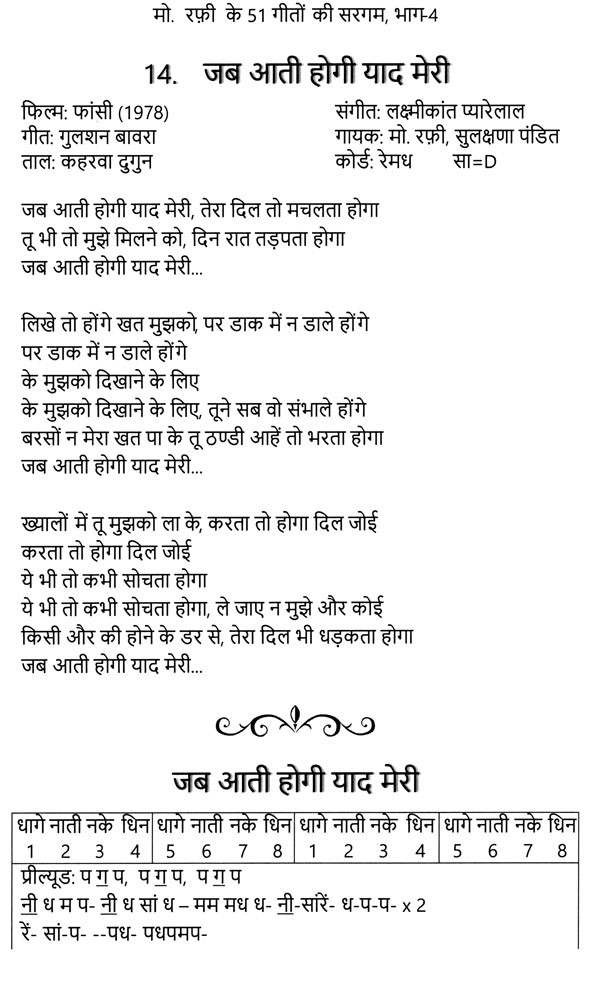 मो. रफ़ी के 51 गीतों की सरगम, भाग-4
14. जब आती होगी याद मेरी
फिल्म: फांसी (1978) संगीत: लक्ष्मीकांत प्यारेलाल
गीत: गुलशन बावरा गायक: मो. रफ़ी, सुलक्षणा पंडित
ताल: कहरवा दुगुन कोर्ड: रेमध सा=D
जब आती होगी याद मेरी, तेरा दिल तो मचलता होगा
तू भी तो मुझे मिलने को, दिन रात तड़पता होगा
जब आती होगी याद मेरी...
लिखे तो होंगे खत मुझको, पर डाक में न डाले होंगे
पर डाक में न डाले होंगे
के मुझको दिखाने के लिए
के मुझको दिखाने के लिए, तूने सब वो संभाले होंगे
बरसों न मेरा खत पा के तू ठण्डी आहें तो भरता होगा
जब आती होगी याद मेरी...
ख्यालों में तू मुझको ला के, करता तो होगा दिल जोई
करता तो होगा दिल जोई
ये भी तो कभी सोचता होगा
ये भी तो कभी सोचता होगा, ले जाए न मुझे और कोई
किसी और की होने के डर से, तेरा दिल भी धड़कता होगा
जब आती होगी याद मेरी...
जब आती होगी याद मेरी
धागे नाती नके धिन धागे नाती नके धिन धागे नाती नके धिन धागे नाती नके धिन
1 2 3 4 5 6 7 8 1 2 3 4 5 6 7 8
प्रील्यूड: प ग॒ प, प ग॒ प, प ग॒ प
नी॒ ध म प- नी॒ ध सां ध – मम मध ध- नी॒-सांरें- ध-प-प- x 2
रें- सां-प- --पध- पधपमप-